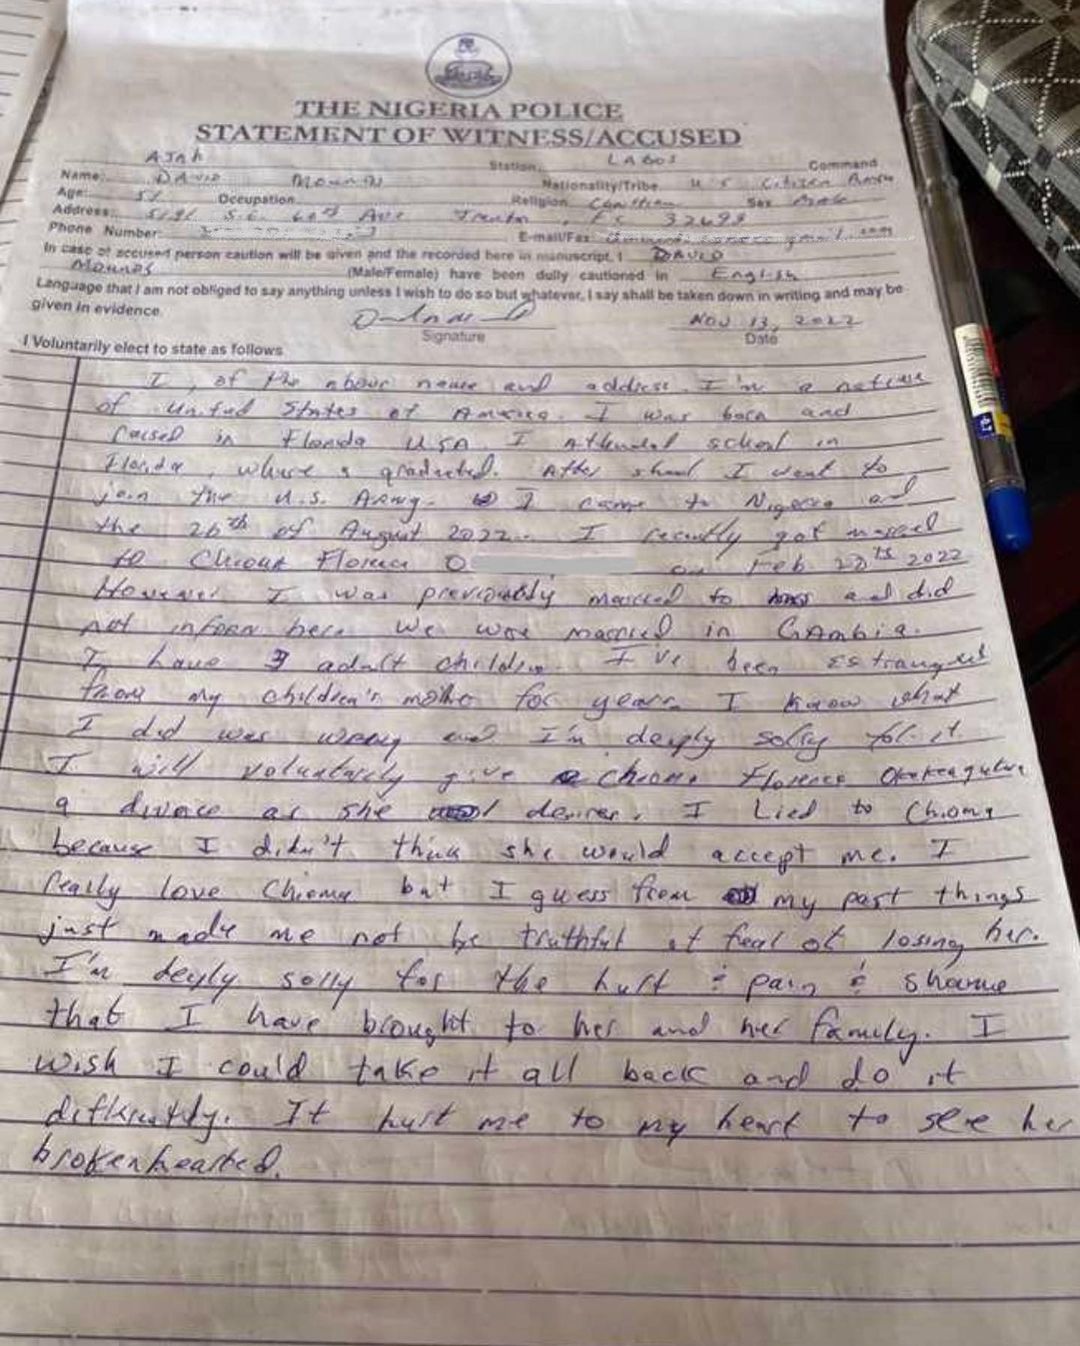 THE NIGERIA POLICE
STATEMENT OF WITNESS/ACCUSED
AJAH Station LAGOS Command
Name: DAVID Nationality/Tribe U.S Citizen
Age: 51 Occupation Religion Christian Sex Male
Address: 5191 S.E. 60th Ave
Phone Number: E-mail/Fax
In case of accused person caution will be given and the recorded here in manuscript, I DAVID
(Male/Female) have been dully cautioned in English
Language that I am not obliged to say anything unless I wish to do so but whatever, I say shall be taken down in writing and may be
given in evidence
Nov 13, 2022
Signature Date
I Voluntarily elect to state as follows
I, of the above name and address. I'm a native
of United States of America. I was born and
raised in Florida USA. I Attended school in
Florida, where I graduated. After school I went to
join the U.S. Army. I came to Nigeria on
the 26th of August 2022. I recently got married
to Florence O on Feb 2022
However I was previously married to and did
not inform her. We were married in GAmbia.
I have 3 adult children. I've been estranged
from my children's mother for years. I know what
I did was wrong and I'm deeply sorry for it
I will voluntarily give Chioma Florence
a divorce as she desires. I Lied to Chioma
because I didn't think she would accept me. I
really love Chioma but I guess from my past things
just made me not be truthful at fear of losing her.
I'm deeply sorry for the hurt & pain & shame
that I have brought to her and her family. I
wish I could take it all back and do it
differently. It hurt me to my heart to see her
brokenhearted.